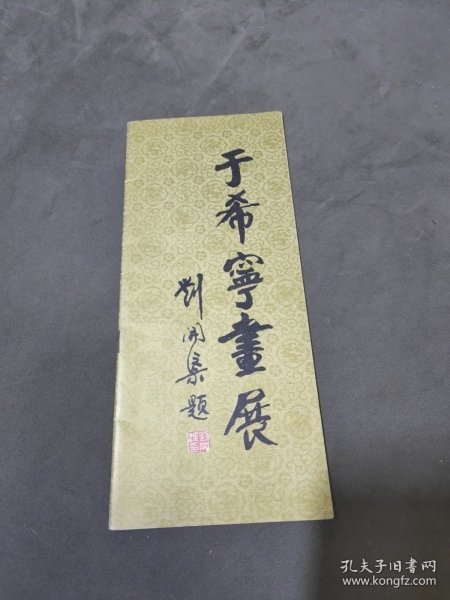 于希寧畫展
刘开渠題
孔夫子旧书网
www.kongfz.com